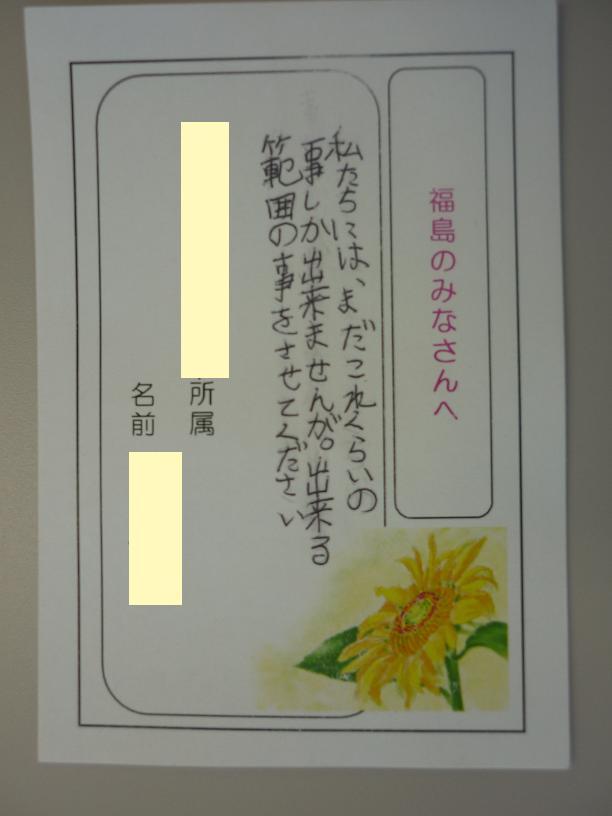 福島のみなさんへ
私たちには、まだこれくらいの
事しか出来ませんが。出来る
範囲の事をさせてください
所属
名前